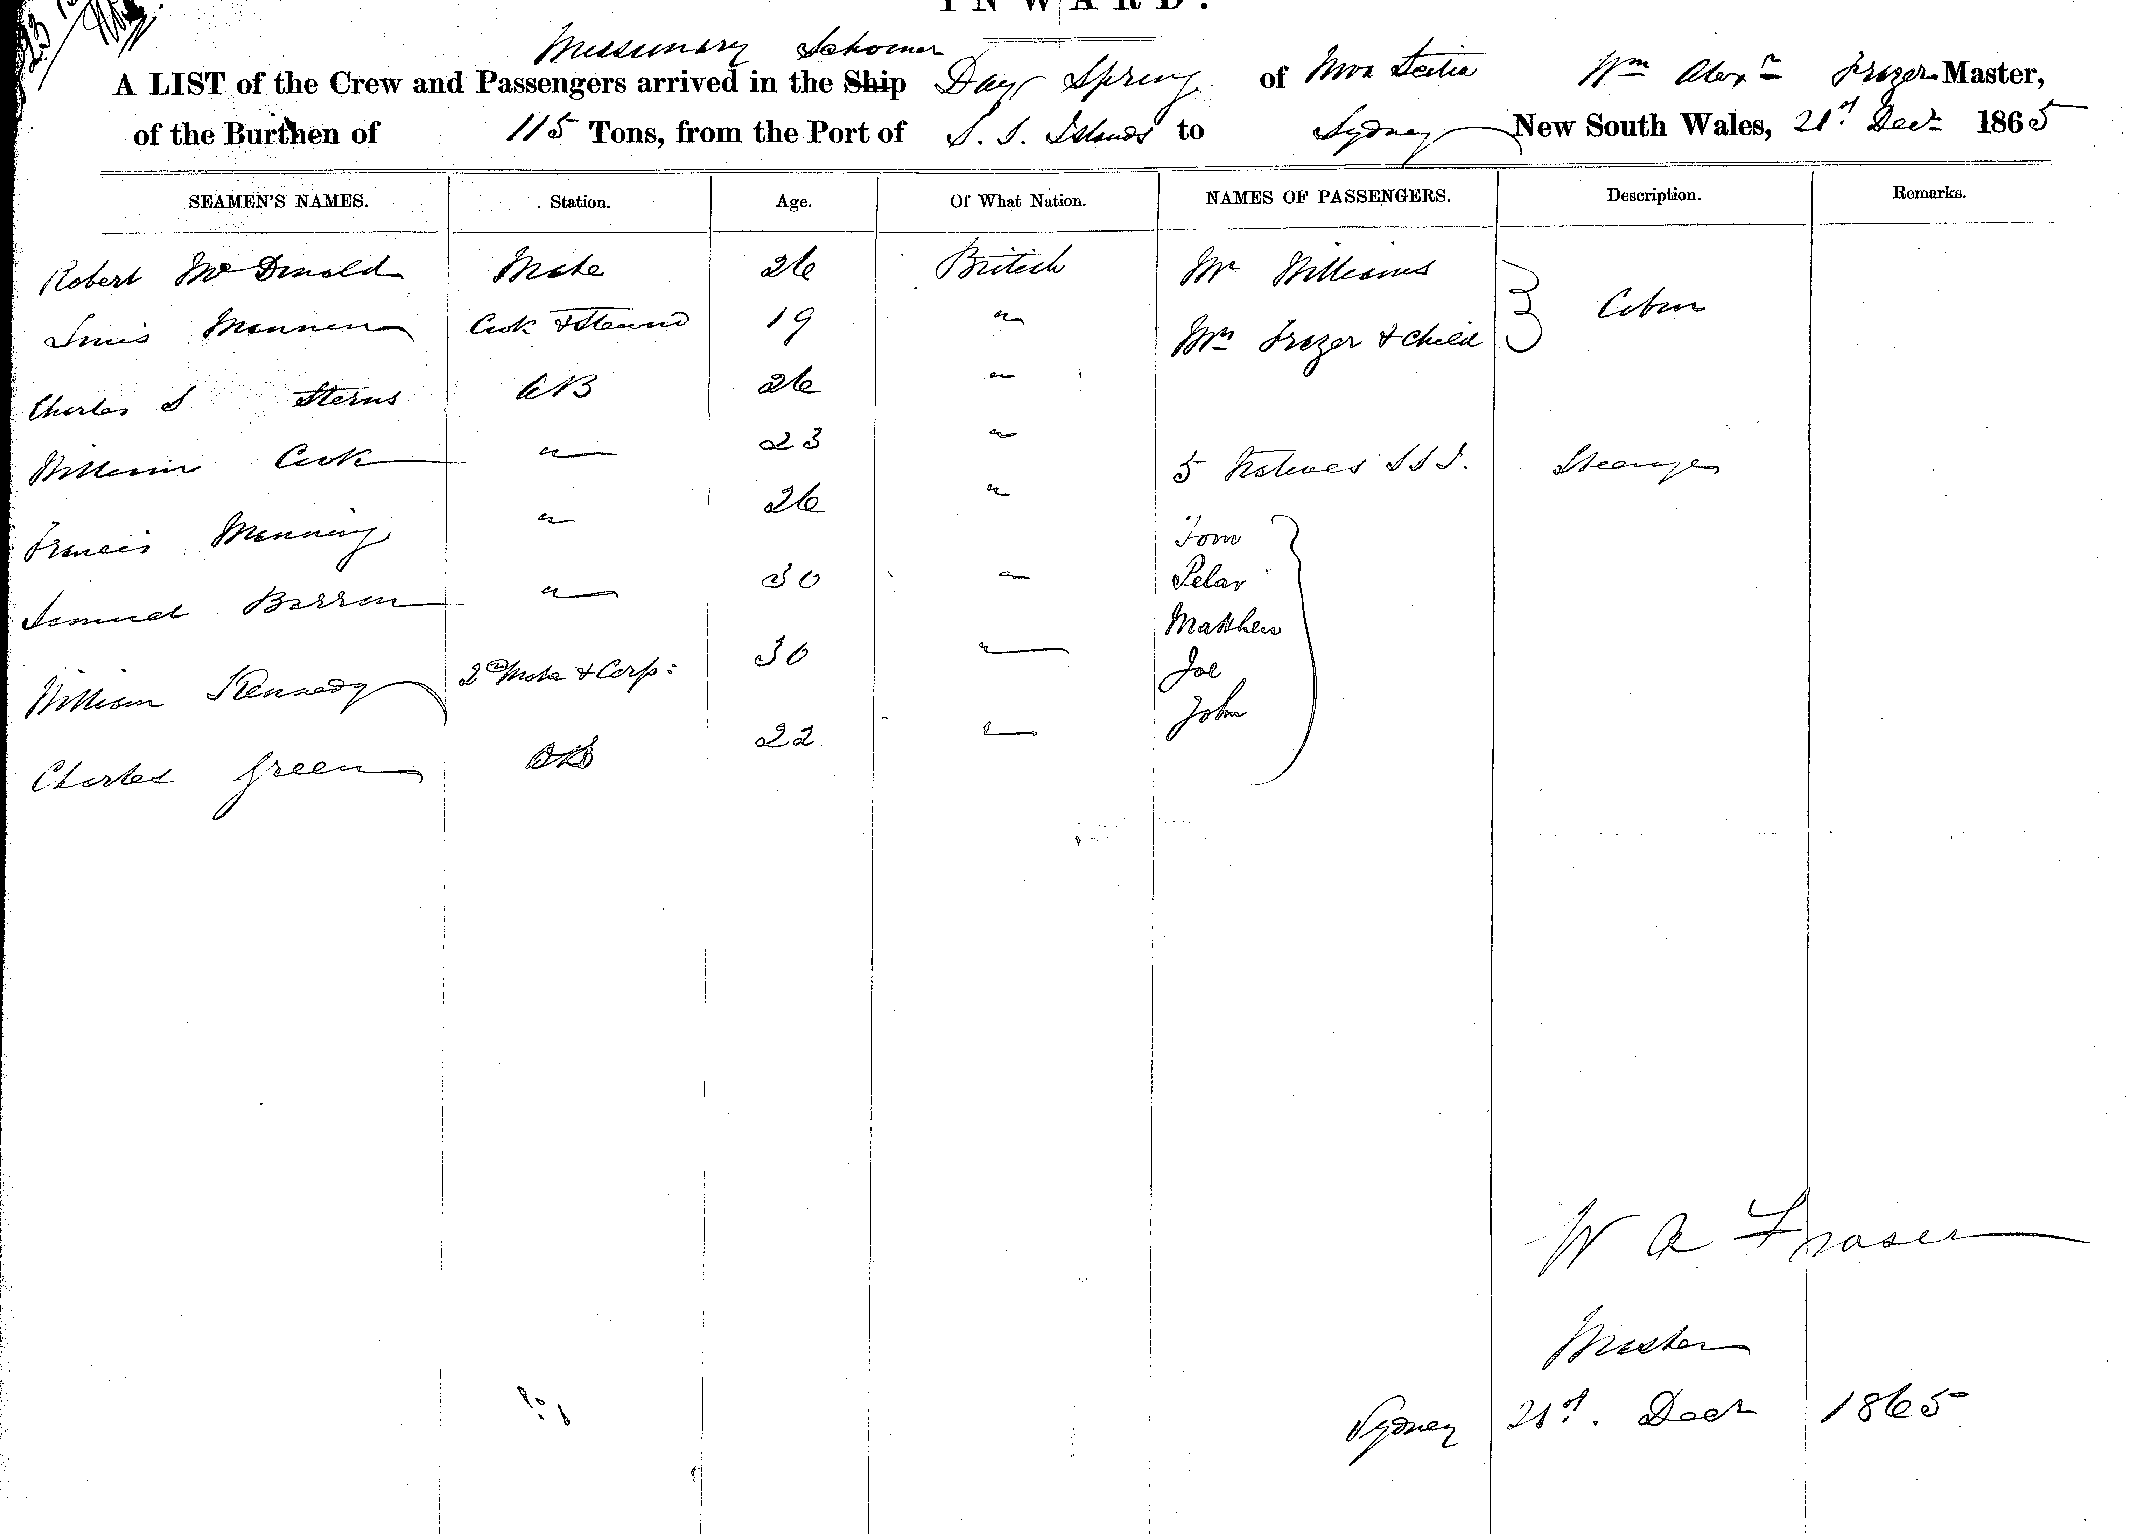 INWARD.
Missionary Schooner
A LIST of the Crew and Passengers arrived in the Ship Day Spring of Nova Scotia Wm Alexr Frazer Master,
of the Burthen of 115 Tons, from the Port of S. S. Islands to Sydney New South Wales, 21st Decr 1865
SEAMEN'S NAMES. Station. Age. Of What Nation. NAMES OF PASSENGERS. Description. Remarks.
Robert McDonald Mate 26 British Mr Williams
Cabin
Louis Cook & Steward 19 " Mrs Frazer & Child
Charles S Sterns AB 26 "
William Cook " 23 " 5 Natives S S I. Steerage
Francis Manning " 26 "
Tom
Samuel Barron " 30 " Pelar
Matthew
William Kennedy 2nd Mate & Carp: 30 " Joe
John
Charles Green 22 "
W A Fraser
Master
Sydney 21st. Decr 1865